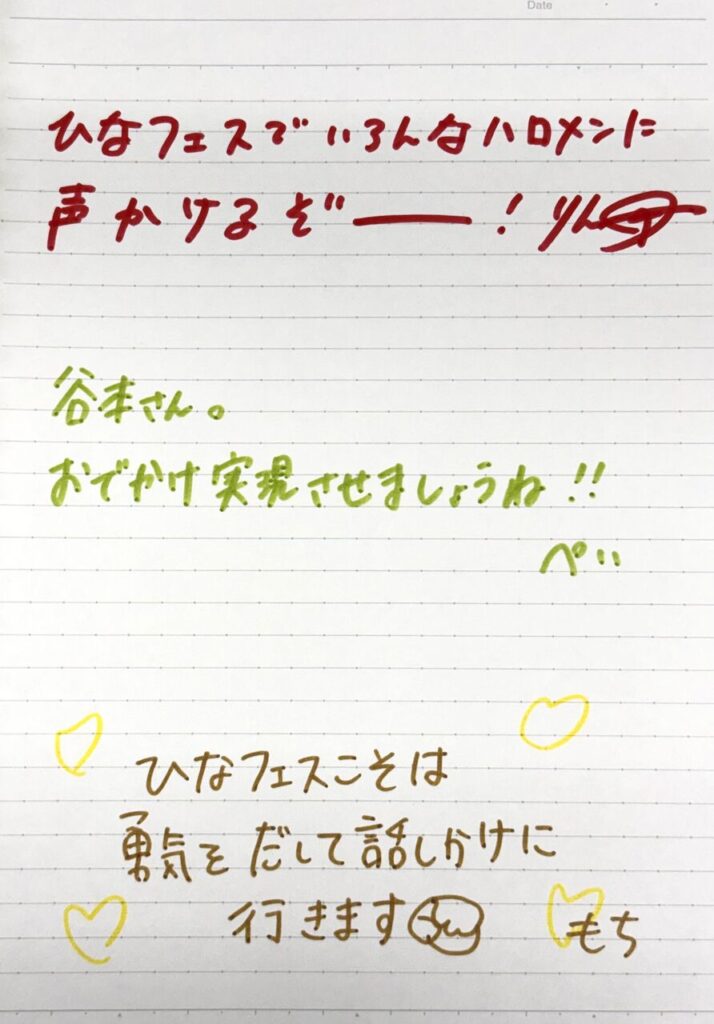 Date
ひなフェスでいろんなハロメンに
声かけるぞー！ りん
谷本さん。
おでかけ実現させましょうね！！
ぺい
ひなフェスこそは
勇気をだして話しかけに
行きます
もち